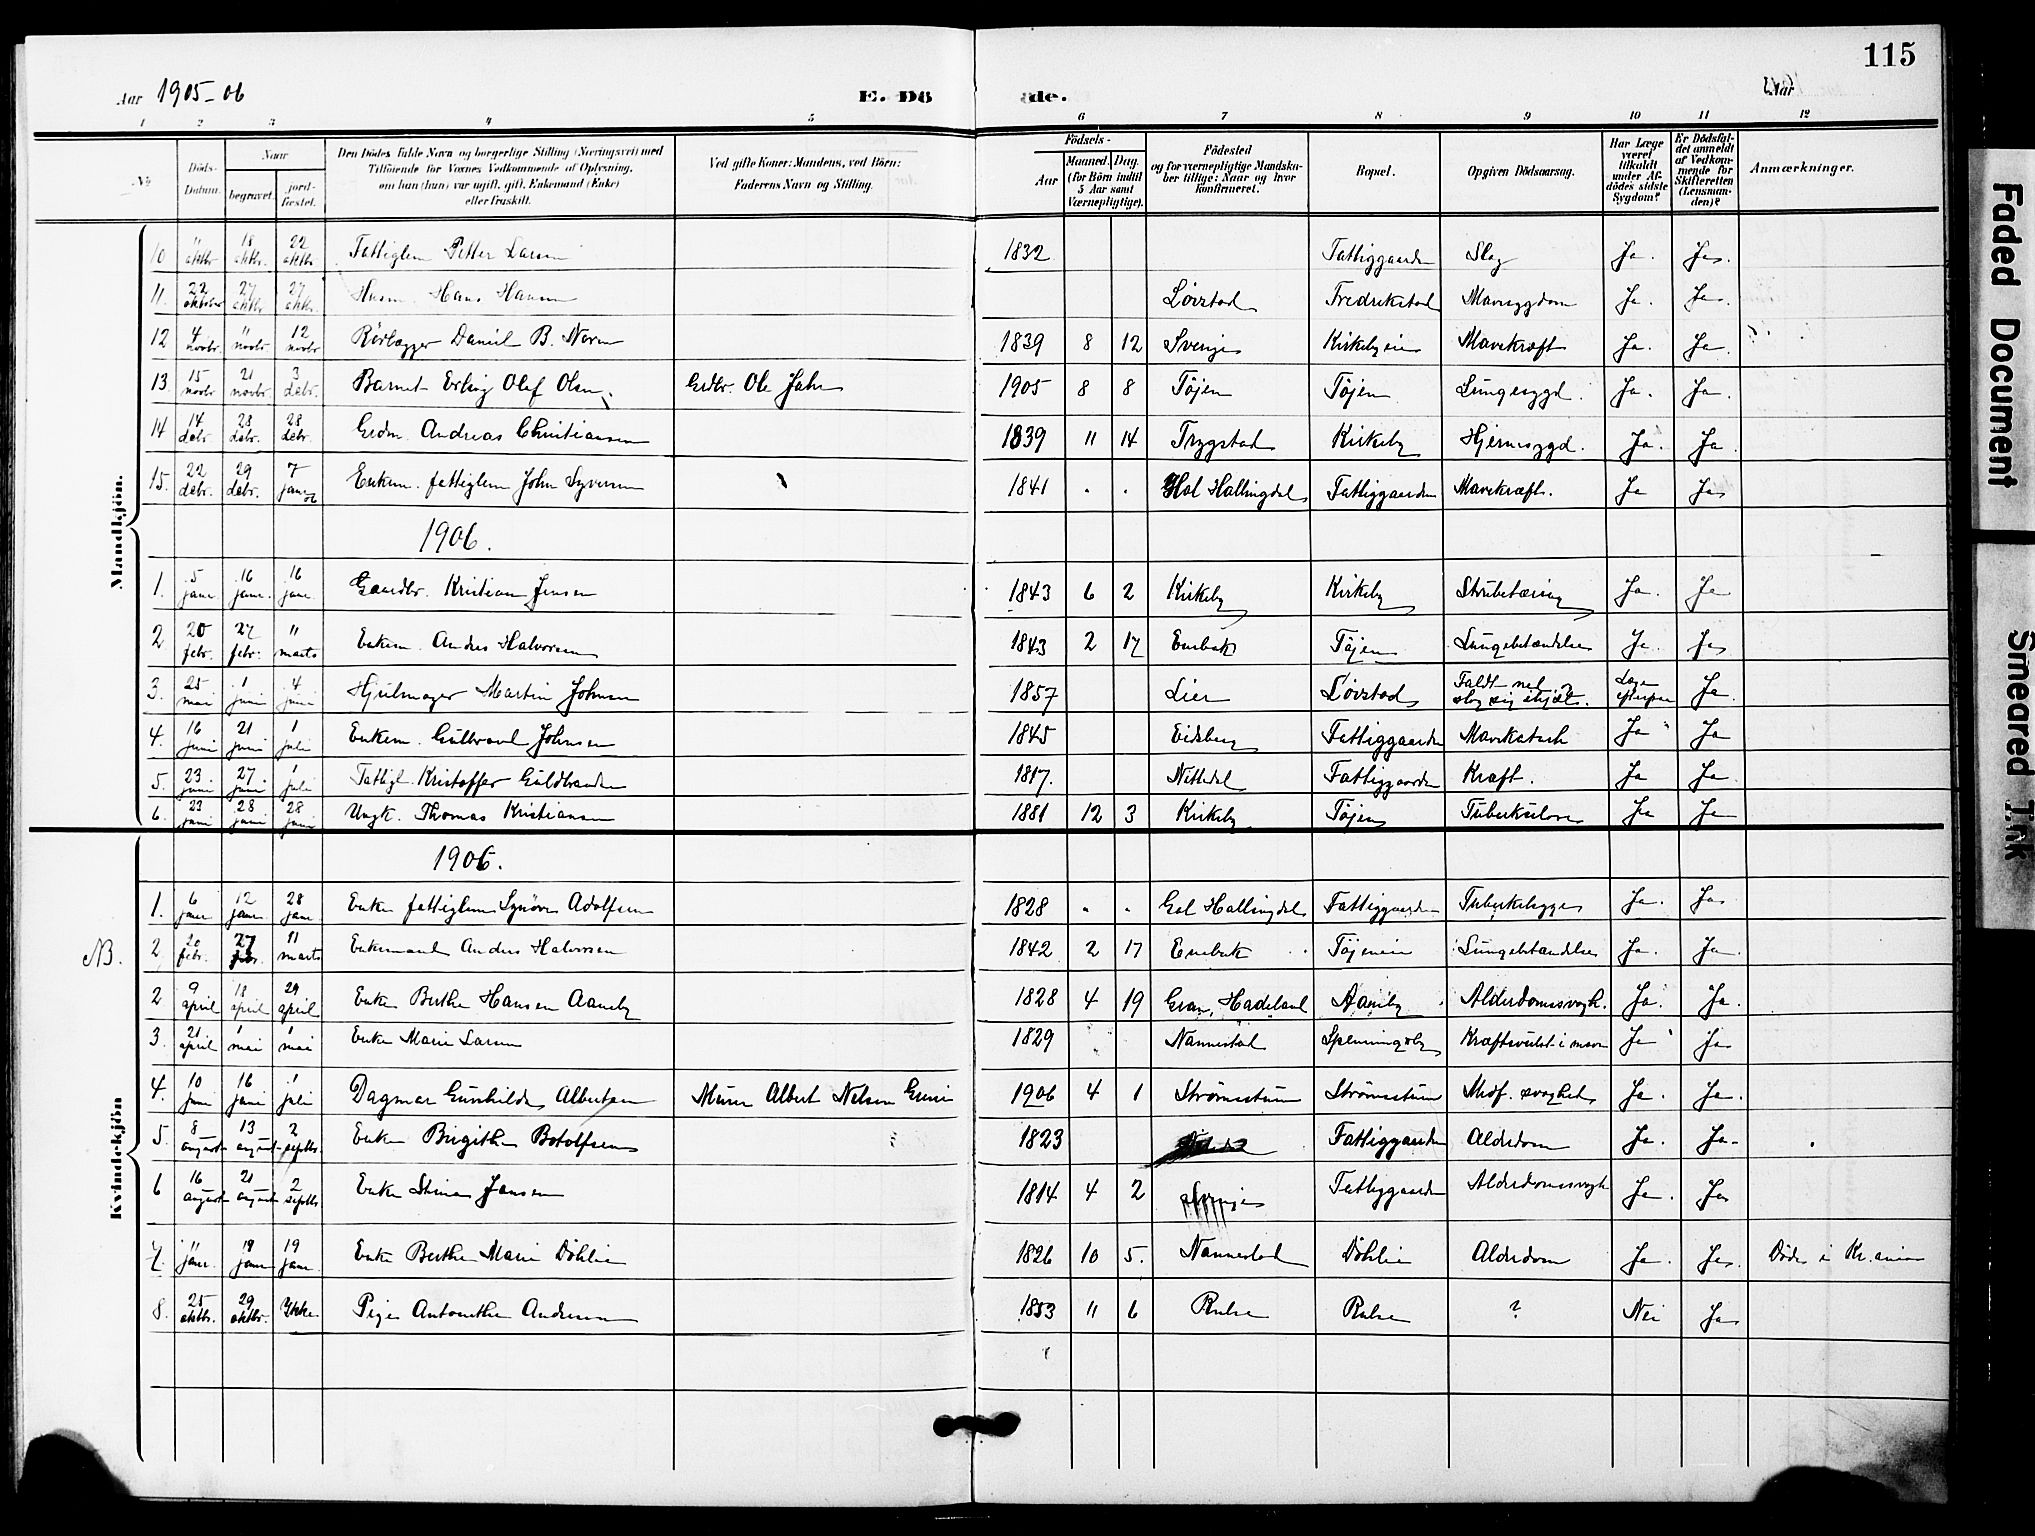 115
Aar 1905-06 E. Döde. Aar
1 2 3 4 5 6 7 8 9 10 11 12
No
Döds-Datum.
Naar
begravet.
jord-fæstet.
Den Dödes fulde Navn og borgerlige Stilling (Næringsvei) med
Tilföiende for Voxnes Vedkommende af Oplysning,
om han (hun) var ugift, gift, Enkemand (Enke)
eller fraskilt.
Ved gifte Koner: Mandens, ved Börn:
Faderens Navn og Stilling.
Födsels-
Aar
Maaned. Dag.
(for Börn indtil
5 Aar samt
Værnepligtige).
Födested
og for værnepligtige Mandska-
ber tillige: Naar og hvor
konfirmeret.
Bopæl.
Opgiven Dödsaarsag.
Har Læge
været
tilkaldt
under Af-
dödes sidste
Sygdom?
Er Dödsfal-
det anmeldt
af Vedkom-
mende for
Skifteretten
(Lensman-
den)?
Anmærkninger.
Mandkjön.
10 oktbr 18 oktbr. 22 oktbr. Fattiglem Petter Larsen 1832 Fattiggaarden Slag Ja. Ja.
11. 22 oktober 27 oktbr 27 oktbr. Husm. Hans Hansen Løvstad Fredrikstad Mavesygdom Ja. Ja.
12 4 novbr. 11 novbr. 12 novbr Rørlægger Daniel B. Noren 1839 8 12 Sverige Kirkebyeie Mavekræft Ja. Ja.
13. 15 novbr 21 novbr. 3 debr. Barnet Erling Olaf Olsen Grdbr. Ole Jahr 1905 8 8 Tøjen Tøjen Lungesygd. Ja. Ja.
14 14 debr. 28 debr. 28 debr. Grdm. Andreas Christiansen 1839 11 14 Trygstad Kirkeby Hjernesygd. Ja. Ja.
15. 22 debr. 29 debr. 7 janr 06 Enkem. fattiglem John Syversen 1841 . . Hol Hallingdal Fattiggaarden Mavekræft. Ja Ja
1906.
1. 5 janr. 16 janr. 16 janr. Gaardbr. Kristian Jensen 1843 6 2 Kirkeby Kirkeby Strubetæring Ja. Ja
2 20 febr. 27 febr. 11 marts Enkem. Anders Halvorsen 1843 2 17 Enebak Tøjen Lungebetændelse Ja. Ja
3. 25 mai 1 juni 4 juni Hjulmager Martin Johnsen 1857 Lier Løvstad Faldt ned slog sig ihjel. Ja
4. 16 juni 21 juni 1 juli Enkem. Gulbrand Johnsen 1845 Eidsberg Fattiggaarden Mavekatarh Ja Ja
5. 23. juni 27. juni 1 juli Fattigl. Kristoffer Guldbrandsen 1817. Nittedal Fattiggaarden Kræft. Ja Ja
6. 23 juni 28 juni 28 juni Ungk. Thomas Kristiansen 1881 12 3 Kirkeby Tøjen Tuberkulose Ja Ja
Kvindekjön
1906.
1. 6 janr 12 janr. 28 janr Enke fattiglem Synøve Adolfsen 1828 . . Gol Hallingdal Fattiggaarden Ja. Ja
NB. 2 20 febr. 27 febr. 11 marts Enkemand Anders Halvorsen 1842 2 17 Enebak Tøjeneie Lungebetændelse Ja. Ja.
2 9 april 18 april 29 april Enke Berthe Hansen Aaneby 1828 4 19 Gran, Hadeland Aaneby Alderdomssvagh. Ja. Ja.
3. 21 april 1 mai 1 mai Enke Marie Larsen 1829 Nannestad Kræftsvulst i maven Ja Ja
4. 10 juni 16 juni 1 juli Dagmar Gunhilda Albertsen Murer Albert Nelson 1906 4 1 Strømstum Strømstum Medf. svaghed Ja. Ja.
5. 8 august 13 august 2 septbr. Enke Birgithe Botolfsen 1823 Fattiggaarden Alderdom Ja. Ja.
6 16 august 21 august 2 septbr. Enke Stina Jansen 1814 4 2 Sverige Fattiggaarden Alderdomssvagh Ja. Ja
7. 11 janr. 19 janr 19 janr. Enke Berthe Marie Döhlie 1826 10 5. Nannestad Döhlie Alderdom Ja. Ja. Døde i Kr.ania
8. 25 oktbr. 29 oktbr. Ikke Pige Antonethe Andersen 1853 11 6 ? Nei Ja
Faded Document
Smeared Ink